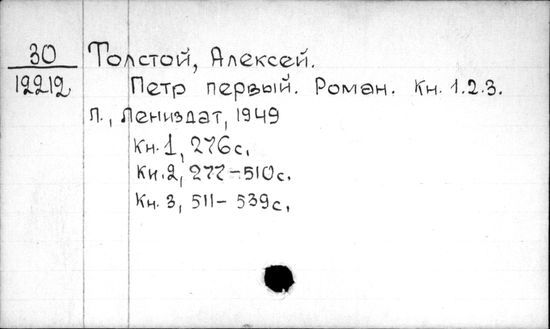 30 Толстой, Алексей.
12212 Петр первый. Роман. Кн. 1.2.3.
Л., Лениздат, 1949
Кн. 1, 276с.
Кн. 2, 277-510с.
Кн. 3, 511- 539с.